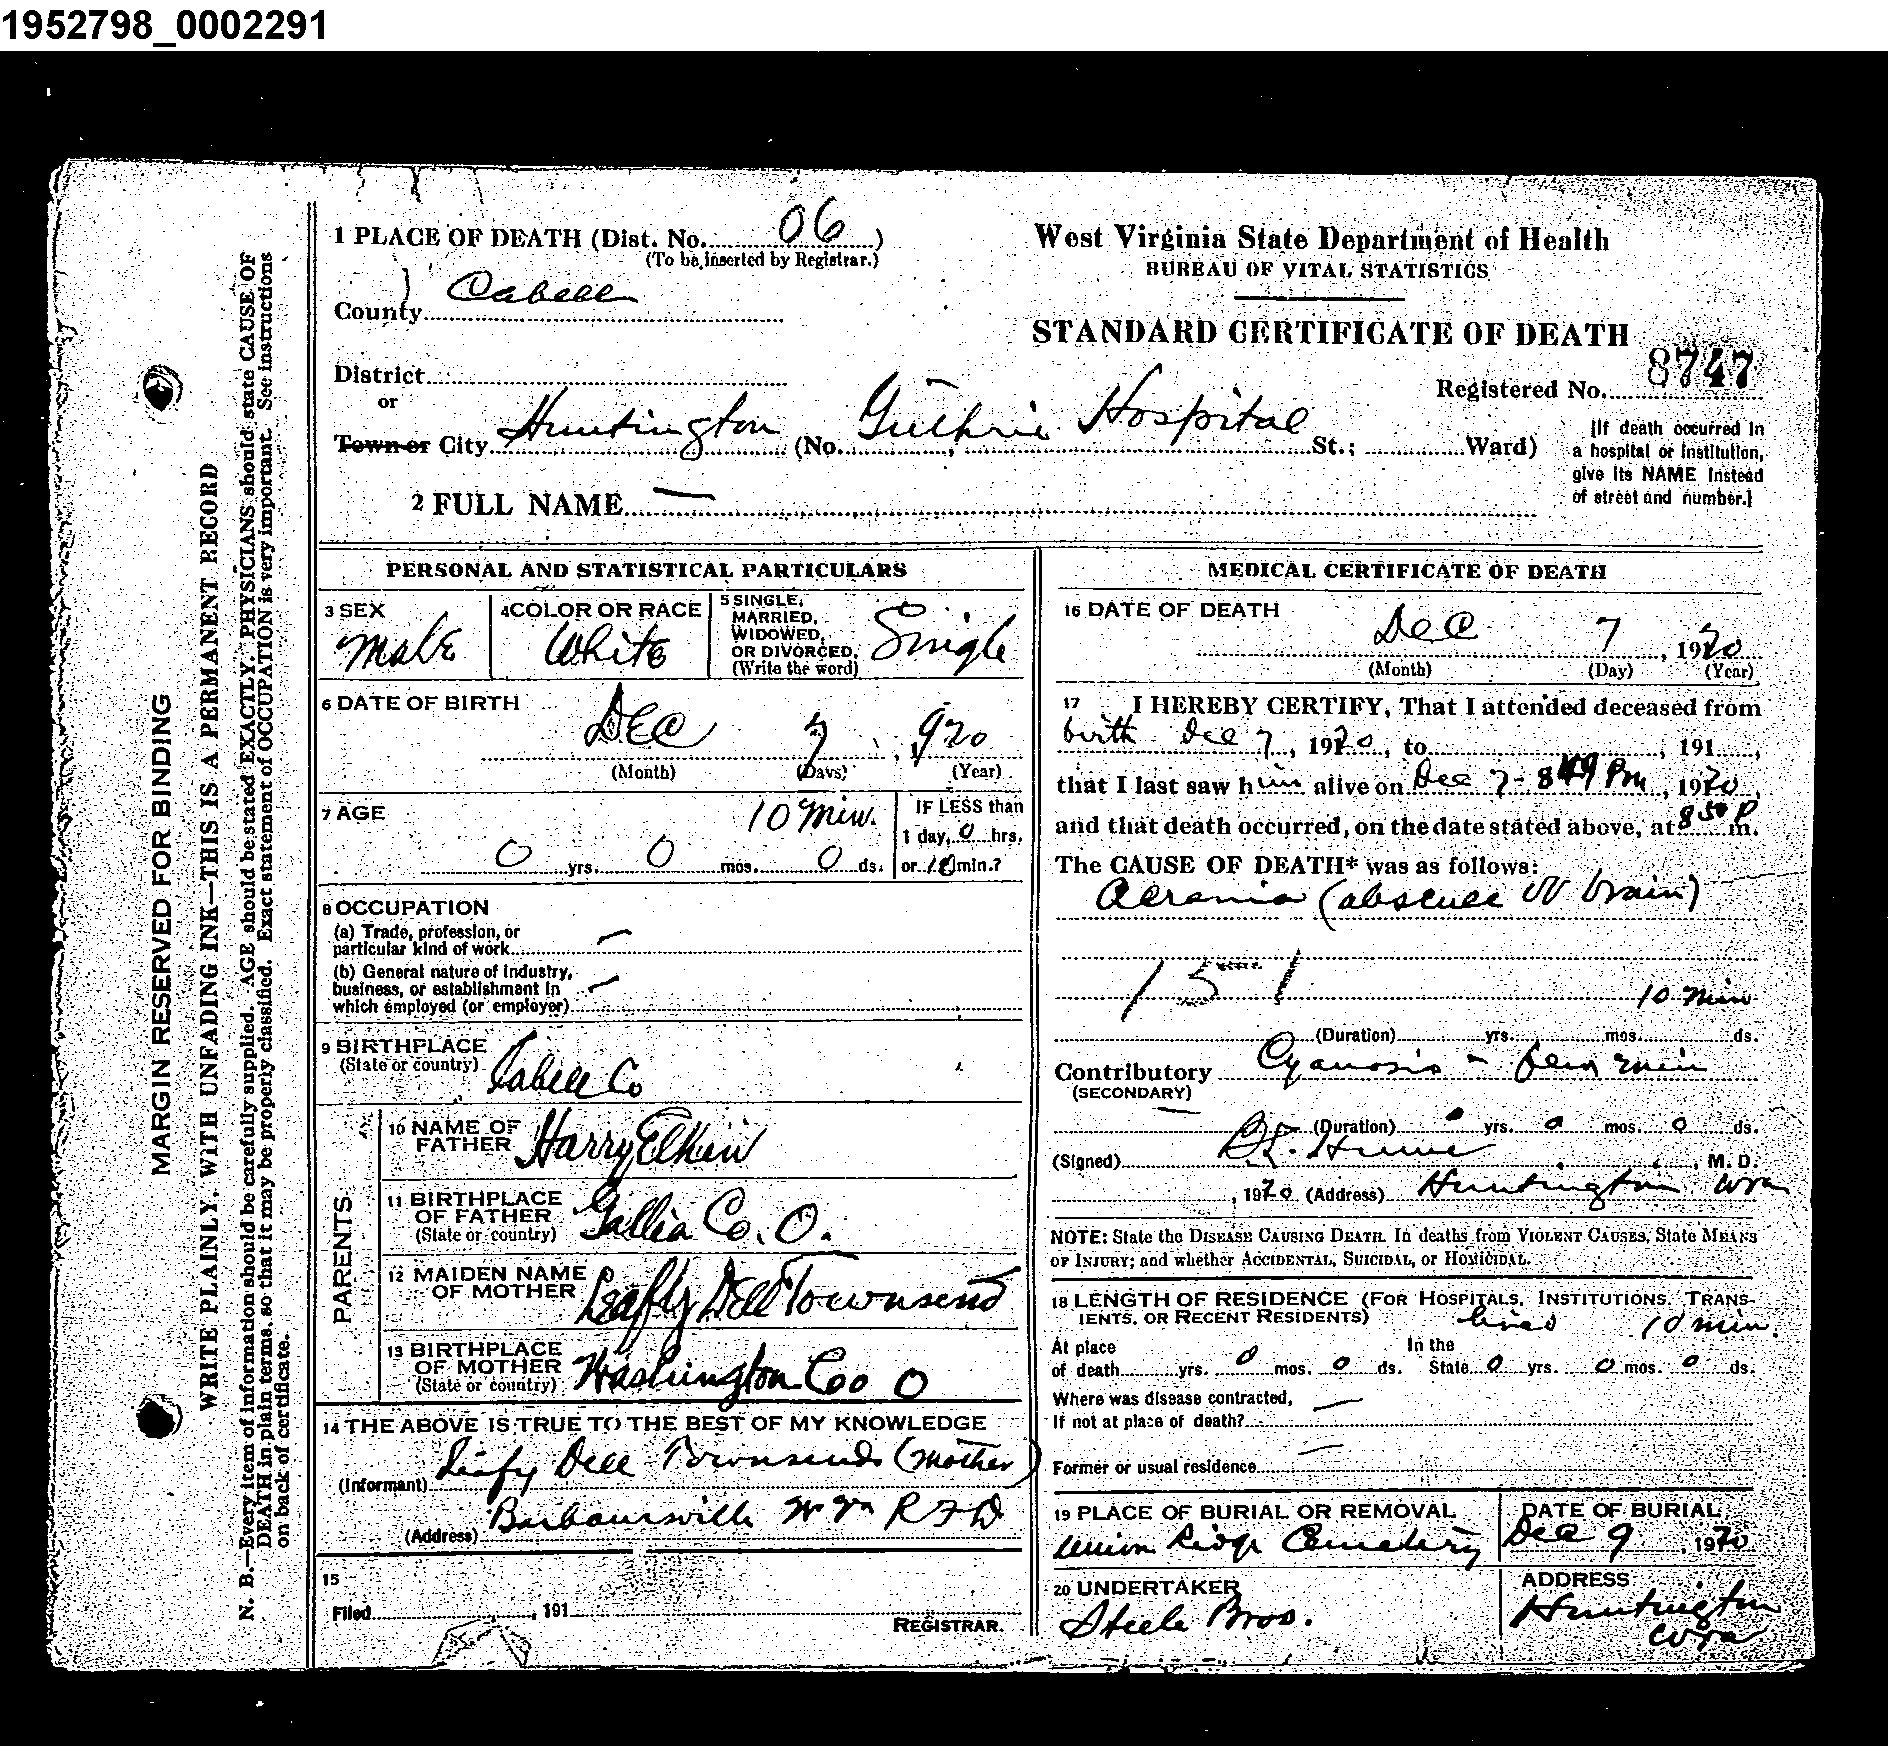 1952798_0002291
1 PLACE OF DEATH (Dist. No. 06 )
(To be inserted by Registrar.)
County Cabell
District
or
Town or City Huntington (No. Guthrie Hospital St.; Ward)
2 FULL NAME —
West Virginia State Department of Health
BUREAU OF VITAL STATISTICS
STANDARD CERTIFICATE OF DEATH
Registered No. 8747
[If death occurred in
a hospital or institution,
give its NAME instead
of street and number.]
MARGIN RESERVED FOR BINDING
WRITE PLAINLY, WITH UNFADING INK—THIS IS A PERMANENT RECORD
N. B.—Every item of information should be carefully supplied. AGE should be stated EXACTLY. PHYSICIANS should state CAUSE OF
DEATH in plain terms, so that it may be properly classified. Exact statement of OCCUPATION is very important. See instructions
on back of certificate.
PERSONAL AND STATISTICAL PARTICULARS
3 SEX
Male
4 COLOR OR RACE
White
5 SINGLE,
MARRIED,
WIDOWED,
OR DIVORCED,
(Write the word)
Single
6 DATE OF BIRTH
Dec 7, 920
(Month) (Days) (Year)
7 AGE
10 Min.
0 yrs. 0 mos. 0 ds.
IF LESS than
1 day, 0 hrs.
or 10 min.?
8 OCCUPATION
(a) Trade, profession, or
particular kind of work —
(b) General nature of Industry,
business, or establishment in
which employed (or employer) —
9 BIRTHPLACE
(State or country) Cabell Co
PARENTS
10 NAME OF
FATHER Harry Elkin
11 BIRTHPLACE
OF FATHER
(State or country) Gallia Co. O.
12 MAIDEN NAME
OF MOTHER Leafy Dell Townsend
13 BIRTHPLACE
OF MOTHER
(State or country) Washington Co O
14 THE ABOVE IS TRUE TO THE BEST OF MY KNOWLEDGE
(Informant) Leafy Dell Townsend (Mother)
(Address) Barboursville W Va R F D
15
Filed , 191
REGISTRAR.
MEDICAL CERTIFICATE OF DEATH
16 DATE OF DEATH
Dec 7, 1920
(Month) (Day) (Year)
17 I HEREBY CERTIFY, That I attended deceased from
birth Dec 7, 1920, to , 191 ,
that I last saw him alive on Dec 7 - 8 49 Pm, 1920,
and that death occurred, on the date stated above, at 8 50 P m.
The CAUSE OF DEATH* was as follows:
Acrania (absence of brain)
151
10 min
(Duration) yrs. mos. ds.
Contributory Cyanosis - few min
(SECONDARY)
(Duration) 0 yrs. 0 mos. 0 ds.
(Signed) Hume , M. D.
, 1920 (Address) Huntington W Va
NOTE: State the DISEASE CAUSING DEATH. In deaths from VIOLENT CAUSES, State MEANS
OF INJURY; and whether ACCIDENTAL, SUICIDAL, or HOMICIDAL.
18 LENGTH OF RESIDENCE (FOR HOSPITALS, INSTITUTIONS, TRANS-
IENTS, OR RECENT RESIDENTS) lived 10 min.
At place In the
of death yrs. 0 mos. 0 ds. State 0 yrs. 0 mos. 0 ds.
Where was disease contracted,
If not at place of death? —
Former or usual residence —
19 PLACE OF BURIAL OR REMOVAL
Union Ridge Cemetery
DATE OF BURIAL
Dec 9, 1920
20 UNDERTAKER
Steele Bros.
ADDRESS
Huntington
W Va